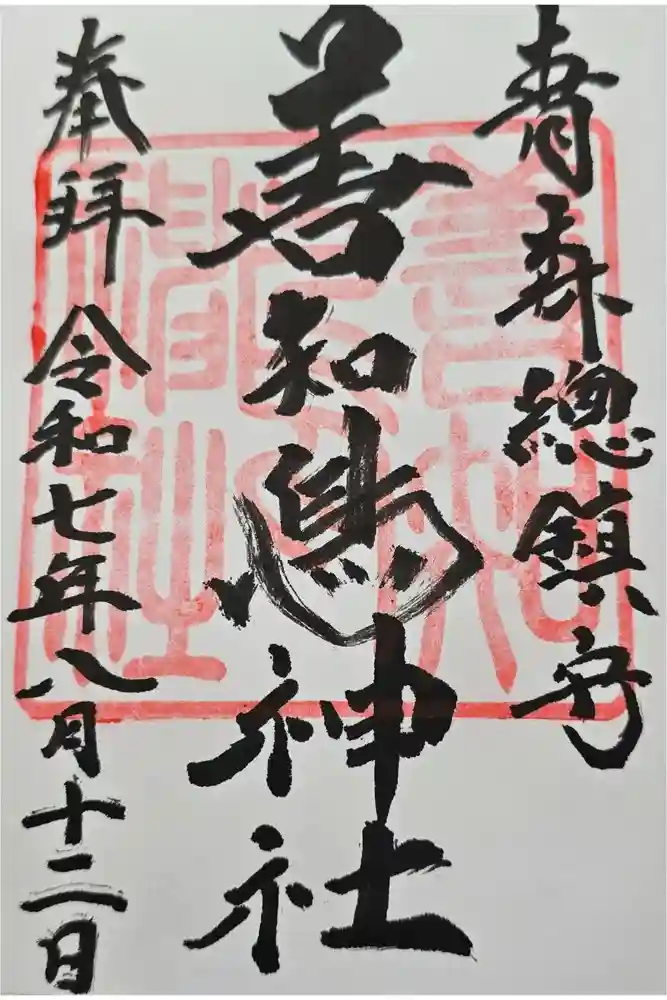 青森總鎮守
善知鳥神社
奉拝 令和七年八月十二日
善知鳥神社